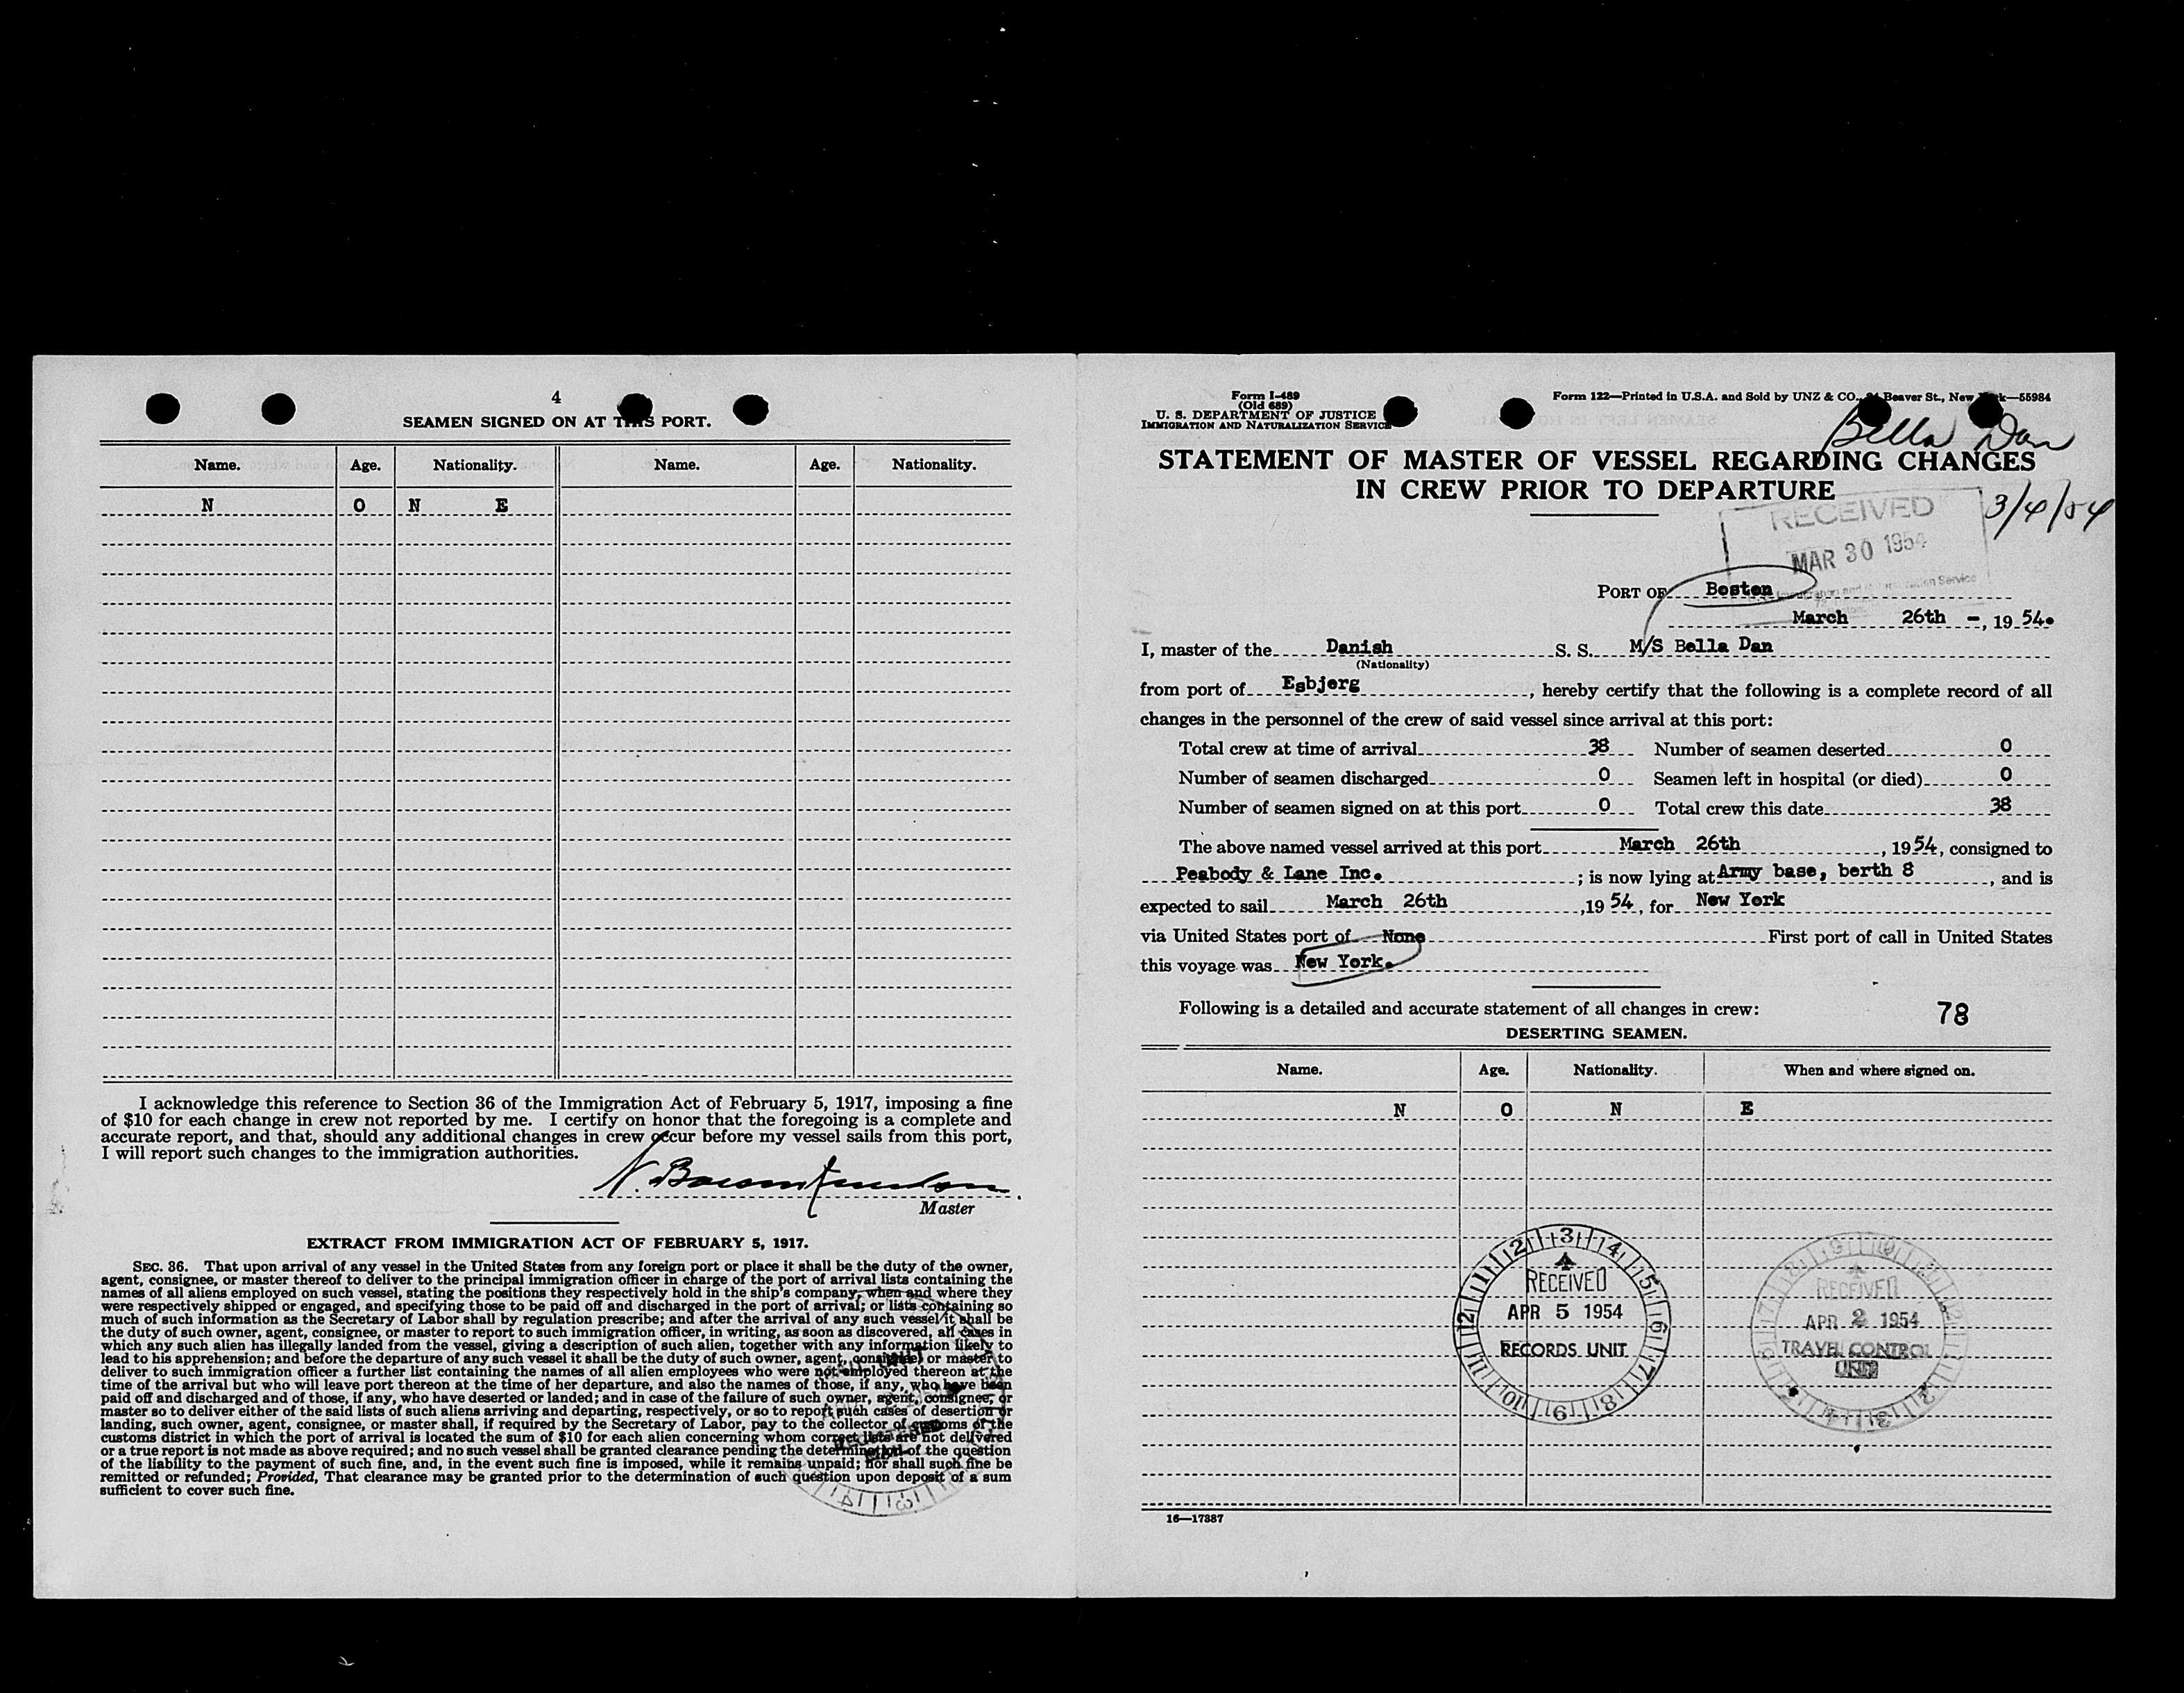 4
SEAMEN SIGNED ON AT THIS PORT.
Name. Age. Nationality. Name. Age. Nationality.
N O N E
I acknowledge this reference to Section 36 of the Immigration Act of February 5, 1917, imposing a fine
of $10 for each change in crew not reported by me. I certify on honor that the foregoing is a complete and
accurate report, and that, should any additional changes in crew occur before my vessel sails from this port,
I will report such changes to the immigration authorities.
Master
EXTRACT FROM IMMIGRATION ACT OF FEBRUARY 5, 1917.
SEC. 36. That upon arrival of any vessel in the United States from any foreign port or place it shall be the duty of the owner,
agent, consignee, or master thereof to deliver to the principal immigration officer in charge of the port of arrival lists containing the
names of all aliens employed on such vessel, stating the positions they respectively hold in the ship's company, when and where they
were respectively shipped or engaged, and specifying those to be paid off and discharged in the port of arrival; or lists containing so
much of such information as the Secretary of Labor shall by regulation prescribe; and after the arrival of any such vessel it shall be
the duty of such owner, agent, consignee, or master to report to such immigration officer, in writing, as soon as discovered, all cases in
which any such alien has illegally landed from the vessel, giving a description of such alien, together with any information likely to
lead to his apprehension; and before the departure of any such vessel it shall be the duty of such owner, agent, consignee, or master to
deliver to such immigration officer a further list containing the names of all alien employees who were not employed thereon at the
time of the arrival but who will leave port thereon at the time of her departure, and also the names of those, if any, who have been
paid off and discharged and of those, if any, who have deserted or landed; and in case of the failure of such owner, agent, consignee, or
master so to deliver either of the said lists of such aliens arriving and departing, respectively, or so to report such cases of desertion or
landing, such owner, agent, consignee, or master shall, if required by the Secretary of Labor, pay to the collector of customs of the
customs district in which the port of arrival is located the sum of $10 for each alien concerning whom correct lists are not delivered
or a true report is not made as above required; and no such vessel shall be granted clearance pending the determination of the question
of the liability to the payment of such fine, and, in the event such fine is imposed, while it remains unpaid; nor shall such fine be
remitted or refunded; Provided, That clearance may be granted prior to the determination of such question upon deposit of a sum
sufficient to cover such fine.
Form I-489
(Old 689)
U. S. DEPARTMENT OF JUSTICE
IMMIGRATION AND NATURALIZATION SERVICE
Form 122—Printed in U.S.A. and Sold by UNZ & CO., Beaver St., New York—55984
Bella Dan
STATEMENT OF MASTER OF VESSEL REGARDING CHANGES
IN CREW PRIOR TO DEPARTURE
3/4/54
RECEIVED
MAR 30 1954
PORT OF Boston
March 26th -, 19 54.
I, master of the Danish S. S. M/S Bella Dan
(Nationality)
from port of Esbjerg, hereby certify that the following is a complete record of all
changes in the personnel of the crew of said vessel since arrival at this port:
Total crew at time of arrival 38 Number of seamen deserted 0
Number of seamen discharged 0 Seamen left in hospital (or died) 0
Number of seamen signed on at this port 0 Total crew this date 38
The above named vessel arrived at this port March 26th, 1954, consigned to
Peabody & Lane Inc.; is now lying at Army base, berth 8, and is
expected to sail March 26th, 19 54, for New York
via United States port of None First port of call in United States
this voyage was New York.
Following is a detailed and accurate statement of all changes in crew: 78
DESERTING SEAMEN.
Name. Age. Nationality. When and where signed on.
N O N E
RECEIVED
APR 5 1954
RECORDS UNIT
RECEIVED
APR 2 1954
TRAVEL CONTROL
UNIT
16—17387